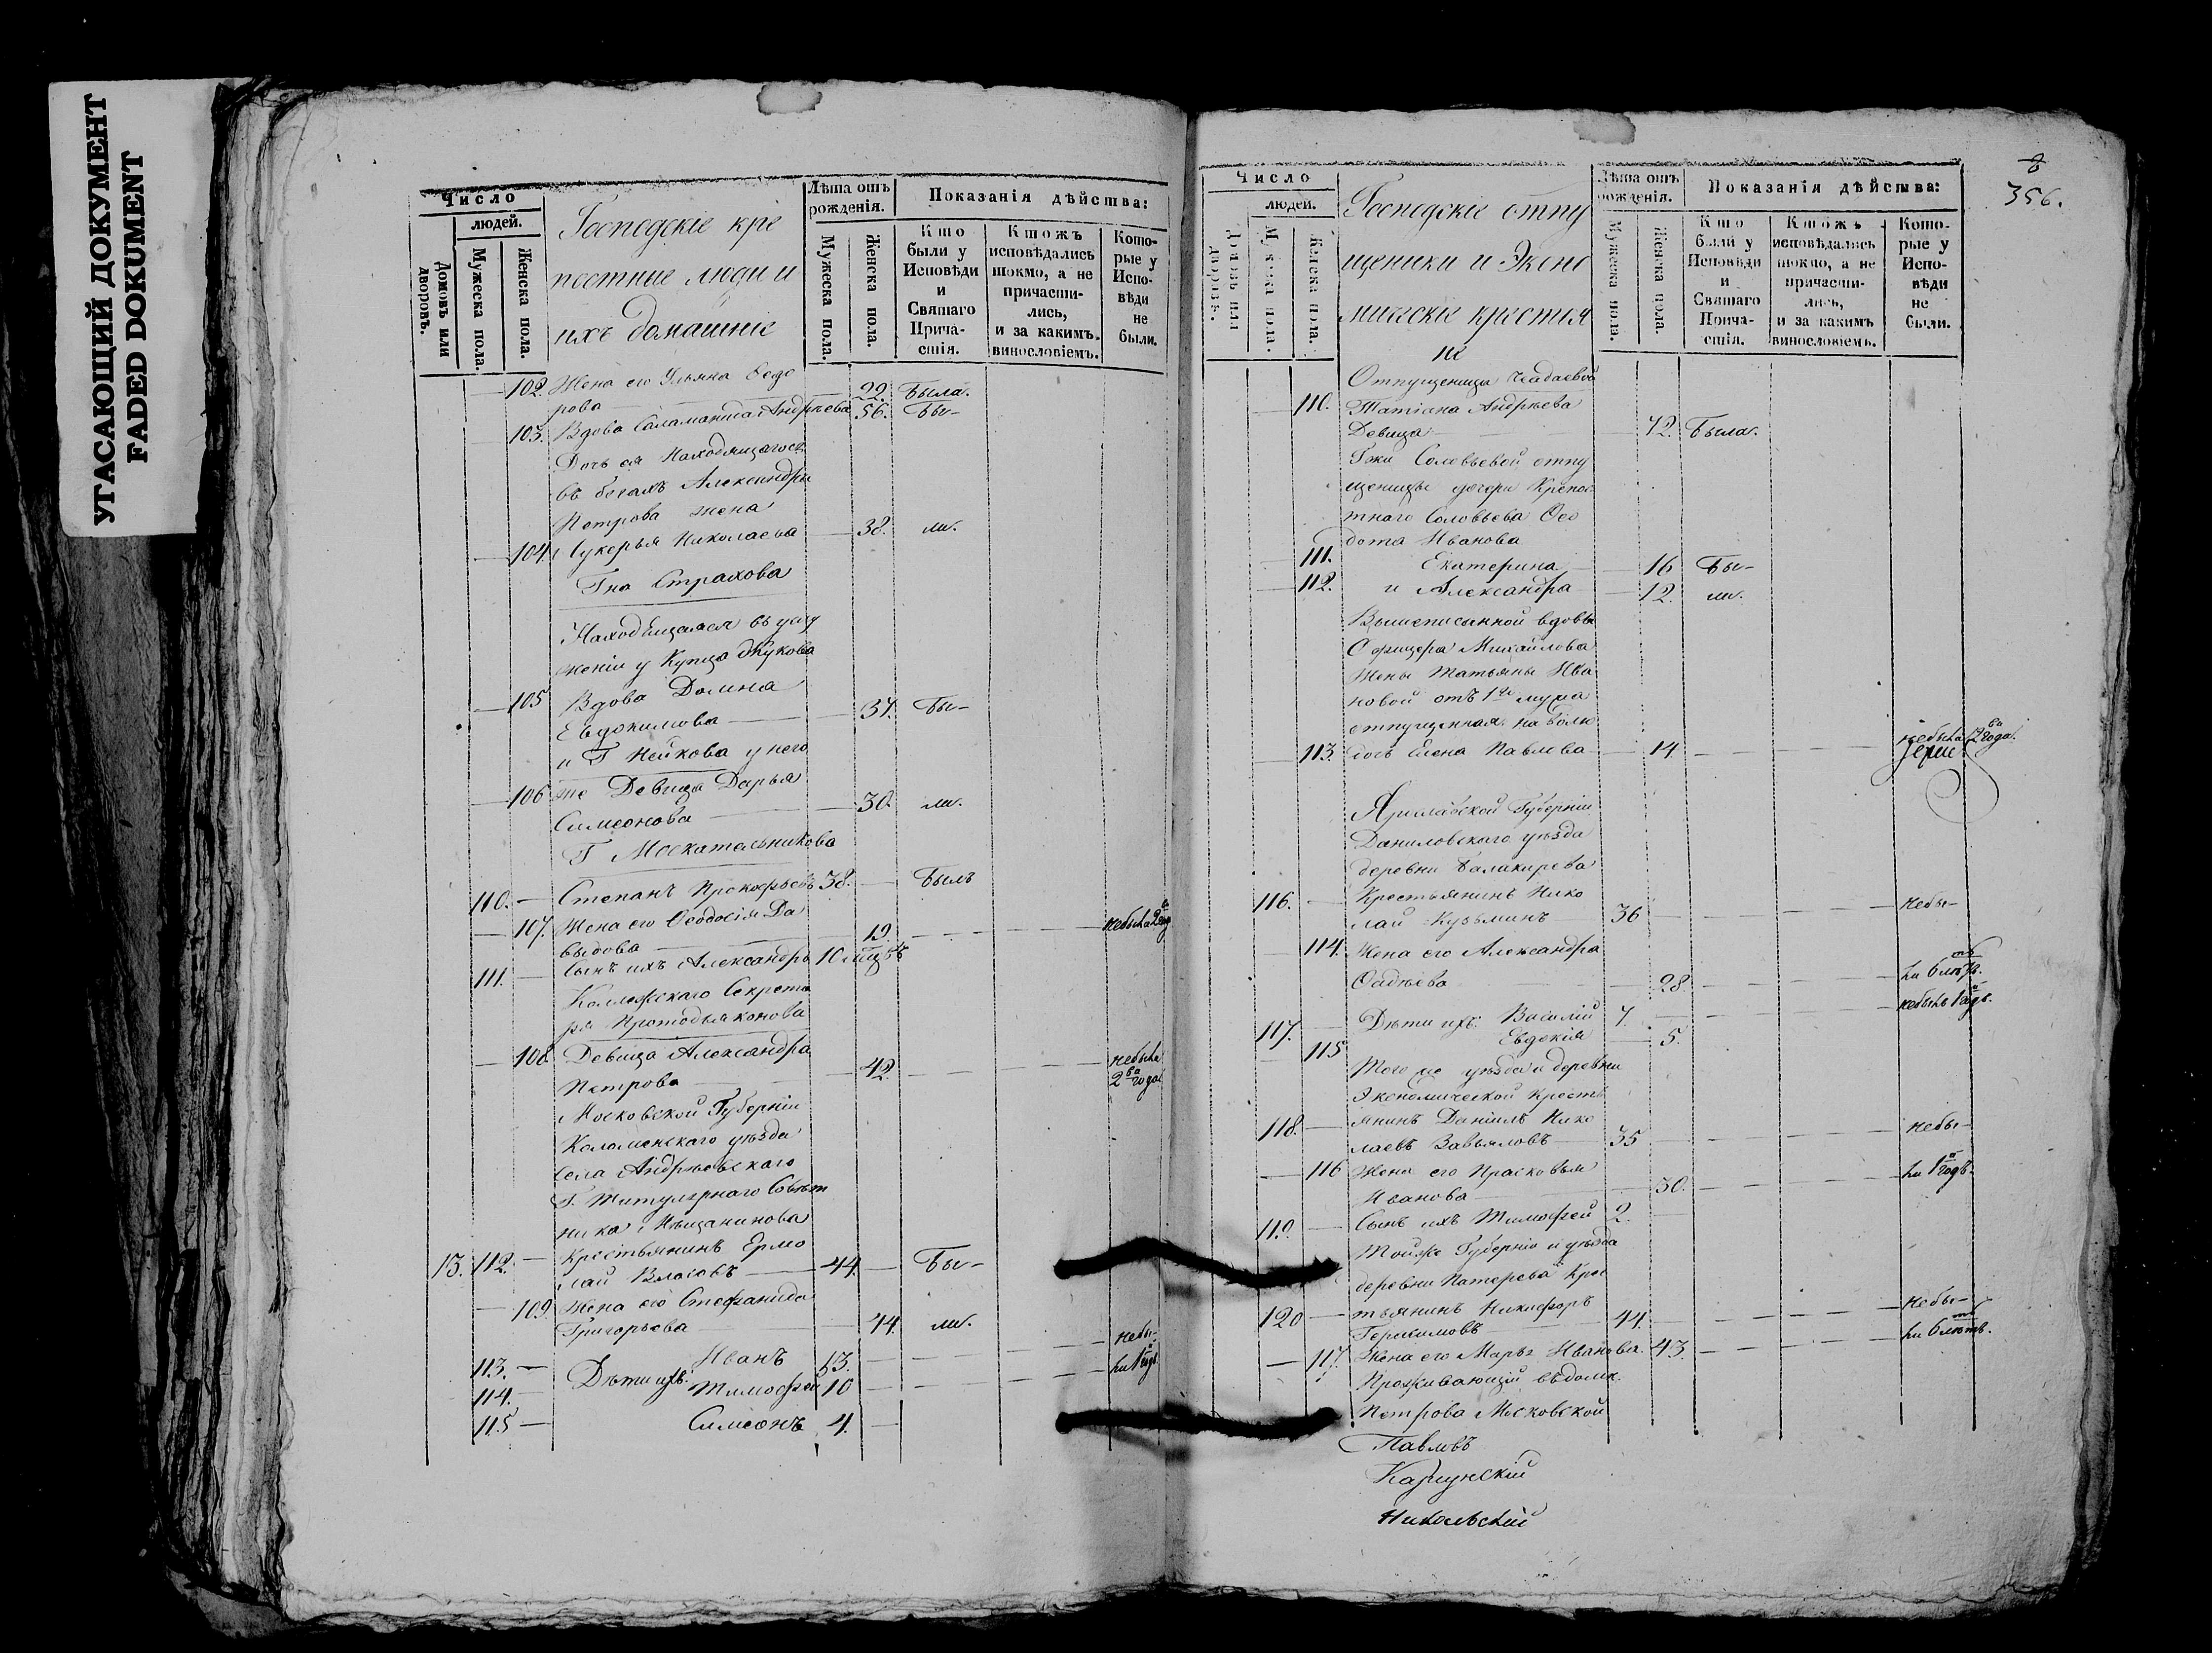 УГАСАЮЩИЙ ДОКУМЕНТ
FADED DOKUMENT
Число
людей.
Домовъ или дворовъ.
Мужеска пола.
Женска пола.
Господскіе кре
постные люди и
ихъ домашніе
Лѣта отъ рожденія.
Мужеска пола.
Женска пола.
Показанія дѣйства:
Кто были у Исповѣди и Святаго Прича-стія.
Ктожъ исповѣдались токмо, а не причасти-лись, и за какимъ винословіемъ.
Кото-рые у Испо-вѣди не были.
102. Жена его Ульяна Ѳедо
рова 22. Была.
103. Вдова Саламанида Андрѣева 56. Бы-
Дочь ея Находящагося
въ бегахъ Александры
Петрова жена
104. Лукерья Николаева 38. ли.
Гна Страхова
Находящаяся въ услу
женіи у Купца Жукова
105 Вдова Домна
Евдокимова 37. Бы-
и Г Нейкова у него
106 же Девица Дарья
Симеонова 30. ли.
Г Москательникова
110. Степанъ Прокофьевъ 38. Былъ
107. Жена его Ѳеодосія Да
выдова 19.
111. Сынъ ихъ Александръ 10
Коллежскаго Секрета
ря Протодьяконова
108. Девица Александра
Петрова 42. небыла 2ва года
Московской Губерніи
Коломенскаго уѣзда
Села Андрѣевскаго
Г. Титулярнаго Совѣт
ника Мѣщанинова
13. 112. Крестьянинъ Ермо
лай Власовъ 44. Бы-
109. Жена его Стефанида
Григорьева 44. ли.
113. Дѣти ихъ: Иванъ 13. небы-
114. Тимофей 10 ли 1 годъ.
115 Симеонъ 4.
356.
Число
людей.
Домовъ или дворовъ.
Мужеска пола.
Женска пола.
Господскіе отпу
щеники и Эконо
мическіе крестья
не
Лѣта отъ рожденія.
Мужеска пола.
Женска пола.
Показанія дѣйства:
Кто были у Исповѣди и Святаго Прича-стія.
Ктожъ исповѣдались токмо, а не причасти-лись, и за какимъ винословіемъ.
Кото-рые у Испо-вѣди не были.
Отпущеница Чадаевой
110. Татіана Андрѣева
Девица 72. Была.
Гжи Соловьевой отпу
щеницы дочери Крепос
тнаго Соловьева Ѳео
дота Иванова
111. Екатерина 16 Бы-
112. и Александра 12. ли.
Вышеписанной вдовы
Офицера Михайлова
жены Татьяны Ива
новой отъ 1го мужа
отпущенная на волю
113. дочь Елена Павлова 14. небыла 2ва года.
Іерие
Ярославской Губерніи
Даниловскаго уѣзда
деревни Балакирева
116. Крестьянинъ Нико
лай Кузьминъ 36 небы-
114. Жена его Александра
Ѳадѣева 28
117. Дѣти ихъ: Василій 7.
115 Евдокія 5.
Того же уѣзда и деревни
Экономической Кресть
118. янинъ Даніилъ Нико
лаевъ Завьяловъ 35 небы-
116 Жена его Прасковья
Иванова 30. ли 1 годъ.
119. Сынъ ихъ Тимофей 2.
Тойже Губерніи и уѣзда
деревни Патерева Крес
120 тьянинъ Никифоръ
Герасимовъ 44. небы-
117. Жена его Марья Иванова. 43. ли 6 лѣтъ.
Проживающій въ доме
Петрова Московской
Павловъ
Никольскій